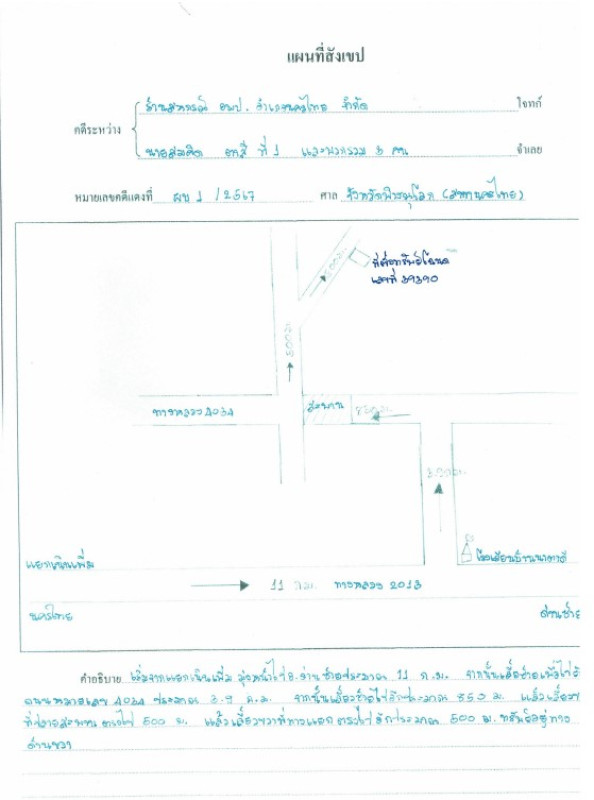 แผนที่สังเขป
ร้านสหกรณ์ อพป. อำเภอนครไทย จำกัด โจทก์
คดีระหว่าง
ที่ 1 และพวกรวม 3 คน จำเลย
หมายเลขคดีแดงที่ ผบ 1 /2567 ศาล จังหวัดพิษณุโลก (สาขานครไทย)
500ม.
ที่ตั้งทรัพย์โฉนด
เลขที่ 39390
500ม.
ทางหลวง 4034
สะพาน
โรงเรียนบ้านนาตาดี
แยกเนินเพิ่ม
11 ก.ม. ทางหลวง 2013
นครไทย
ด่านซ้าย
คำอธิบาย เริ่มจากแยกเนินเพิ่ม มุ่งหน้าไป อ.ด่านซ้ายประมาณ 11 ก.ม. จากนั้นเลี้ยวซ้ายเข้าไป
ถนนหมายเลข 4034 ประมาณ 3.9 ก.ม. จากนั้นเลี้ยวซ้ายไปอีกประมาณ 850 ม. แล้วเลี้ยวข
ที่ปลายสะพาน ตรงไป 500 ม. แล้วเลี้ยวขวาที่ทางแยก ตรงไปอีกประมาณ 500 ม. ทรัพย์อยู่ทาง
ด้านขวา